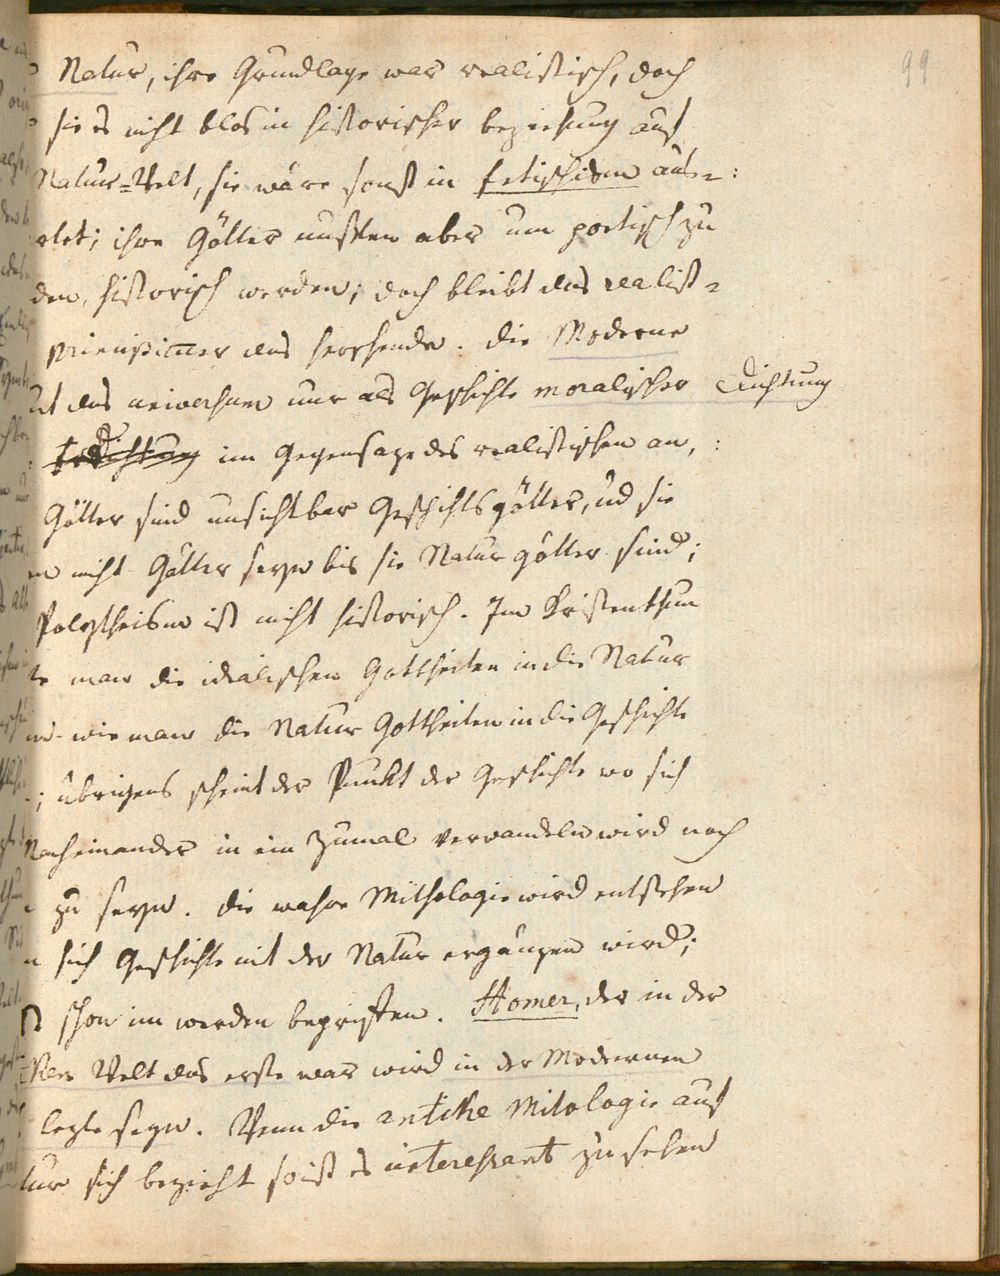 99
Natur, ihre Grundlage war realistisch, doch
sie es nicht blos in historischer beziehung auf
Natur=Welt, sie wäre sonst in fetischism aus=
rtet; ihre Götter mußten aber um poetisch zu
den, historisch werden; doch bleibt das realist=
das herschende. die Moderne
ut das universum nur als Geschichte moralischer Dichtung
im Gegensaze des realistischen an,
Götter sind unsichtbar Geschichtsgötter, ud sie
en nicht Götter seyn bis sie Naturgötter sind;
Polytheism ist nicht historisch. Im Kristenthum
te man die idealischen Gottheiten in die Natur
wie man die Natur Gottheiten in die Geschichte
; übrigens scheint der Punkt der Geschichte wo sich
Nacheinander in ein Zumal verwandeln wird noch
zu seyn. die wahre Mithologie wird entstehen
n sich Geschichte mit der Natur ergänzen wird;
schon im werden begriffen. Homer, der in der
Welt das erste war wird in der Modernen
lezte seyn. Wenn die antike Mitologie auf
tur sich bezieht so ist es interessant zu sehen